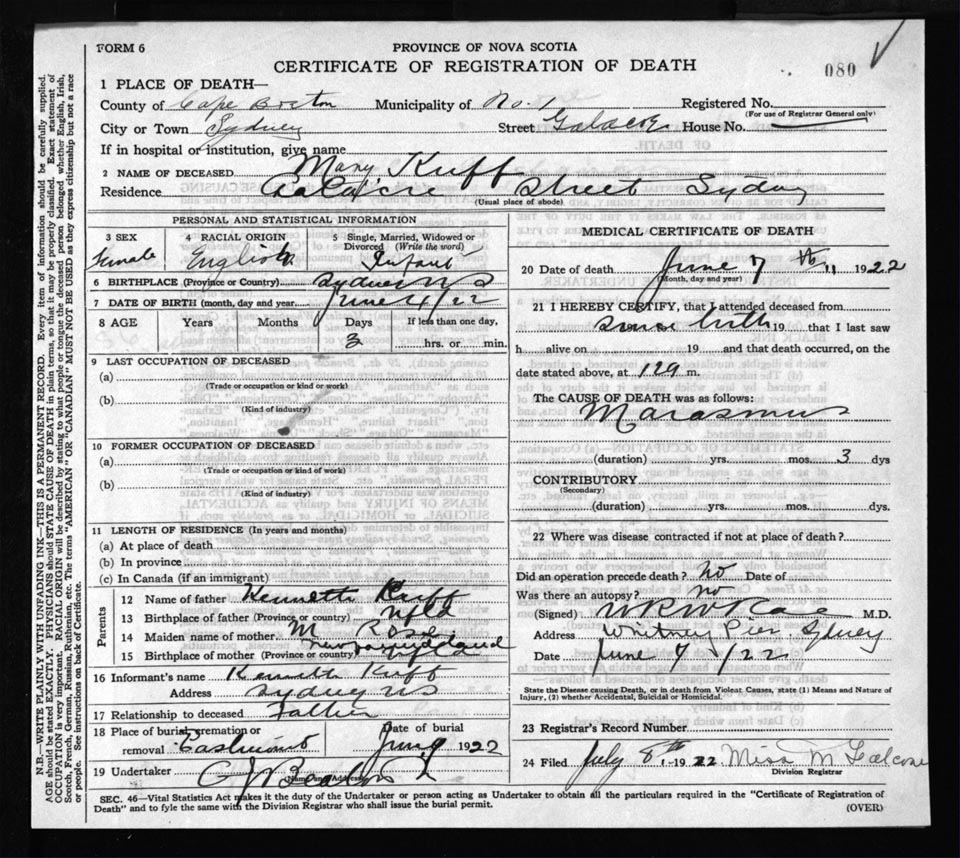 FORM 6
PROVINCE OF NOVA SCOTIA
CERTIFICATE OF REGISTRATION OF DEATH
080
1 PLACE OF DEATH—
County of Cape Breton Municipality of No. 1 Registered No.
(For use of Registrar General only)
City or Town Sydney Street House No.
If in hospital or institution, give name
2 NAME OF DECEASED Mary Kuff
Residence Street Sydney
(Usual place of abode)
PERSONAL AND STATISTICAL INFORMATION
3 SEX 4 RACIAL ORIGIN 5 Single, Married, Widowed or Divorced (Write the word)
Female English Infant
6 BIRTHPLACE (Province or Country) Sydney N S
7 DATE OF BIRTH (month, day and year) June 4/22
8 AGE Years Months Days If less than one day,
3 hrs. or min.
9 LAST OCCUPATION OF DECEASED
(a)
(Trade or occupation or kind or work)
(b)
(Kind of industry)
10 FORMER OCCUPATION OF DECEASED
(a)
(Trade or occupation or kind of work)
(b)
(Kind of industry)
11 LENGTH OF RESIDENCE (In years and months)
(a) At place of death
(b) In province
(c) In Canada (if an immigrant)
Parents
12 Name of father Kenneth Kuff
13 Birthplace of father (Province or country) Nfld
14 Maiden name of mother M Rose
15 Birthplace of mother (Province or country) Newfoundland
16 Informant's name Kenneth Kuff
Address Sydney NS
17 Relationship to deceased Father
18 Place of burial, cremation or removal Date of burial
June 9 1922
19 Undertaker
(Name and Address)
MEDICAL CERTIFICATE OF DEATH
20 Date of death June 7th 1922
(Month, day and year)
21 I HEREBY CERTIFY, that I attended deceased from
since birth 19 that I last saw
h alive on 19 and that death occurred, on the
date stated above, at 129 m.
The CAUSE OF DEATH was as follows:
Marasmus
(duration) yrs. mos. 3 dys
CONTRIBUTORY
(Secondary)
(duration) yrs. mos. dys.
22 Where was disease contracted if not at place of death?
Did an operation precede death? No Date of
Was there an autopsy? No
(Signed) M.D.
Address Whitney Pier Sydney
Date June 7 /22
State the Disease causing Death, or in death from Violent Causes, state (1) Means and Nature of Injury, (2) whether Accidental, Suicidal or Homicidal.
23 Registrar's Record Number
24 Filed July 8th 1922 Miss M
Division Registrar
SEC. 46—Vital Statistics Act makes it the duty of the Undertaker or person acting as Undertaker to obtain all the particulars required in the "Certificate of Registration of
Death" and to fyle the same with the Division Registrar who shall issue the burial permit.
(OVER)
N.B.—WRITE PLAINLY WITH UNFADING INK—THIS IS A PERMANENT RECORD. Every item of information should be carefully supplied.
AGE should be stated EXACTLY. PHYSICIANS should STATE CAUSE OF DEATH in plain terms, so that it may be properly classified. Exact statement of
OCCUPATION is very important. RACIAL ORIGIN will be described by stating to what people or tongue the deceased person belonged whether English, Irish,
Scotch, French, German, Russian, Ruthenian, etc. The terms "AMERICAN" OR "CANADIAN" MUST NOT BE USED as they express citizenship but not a race
or people. See instructions on back of Certificate.